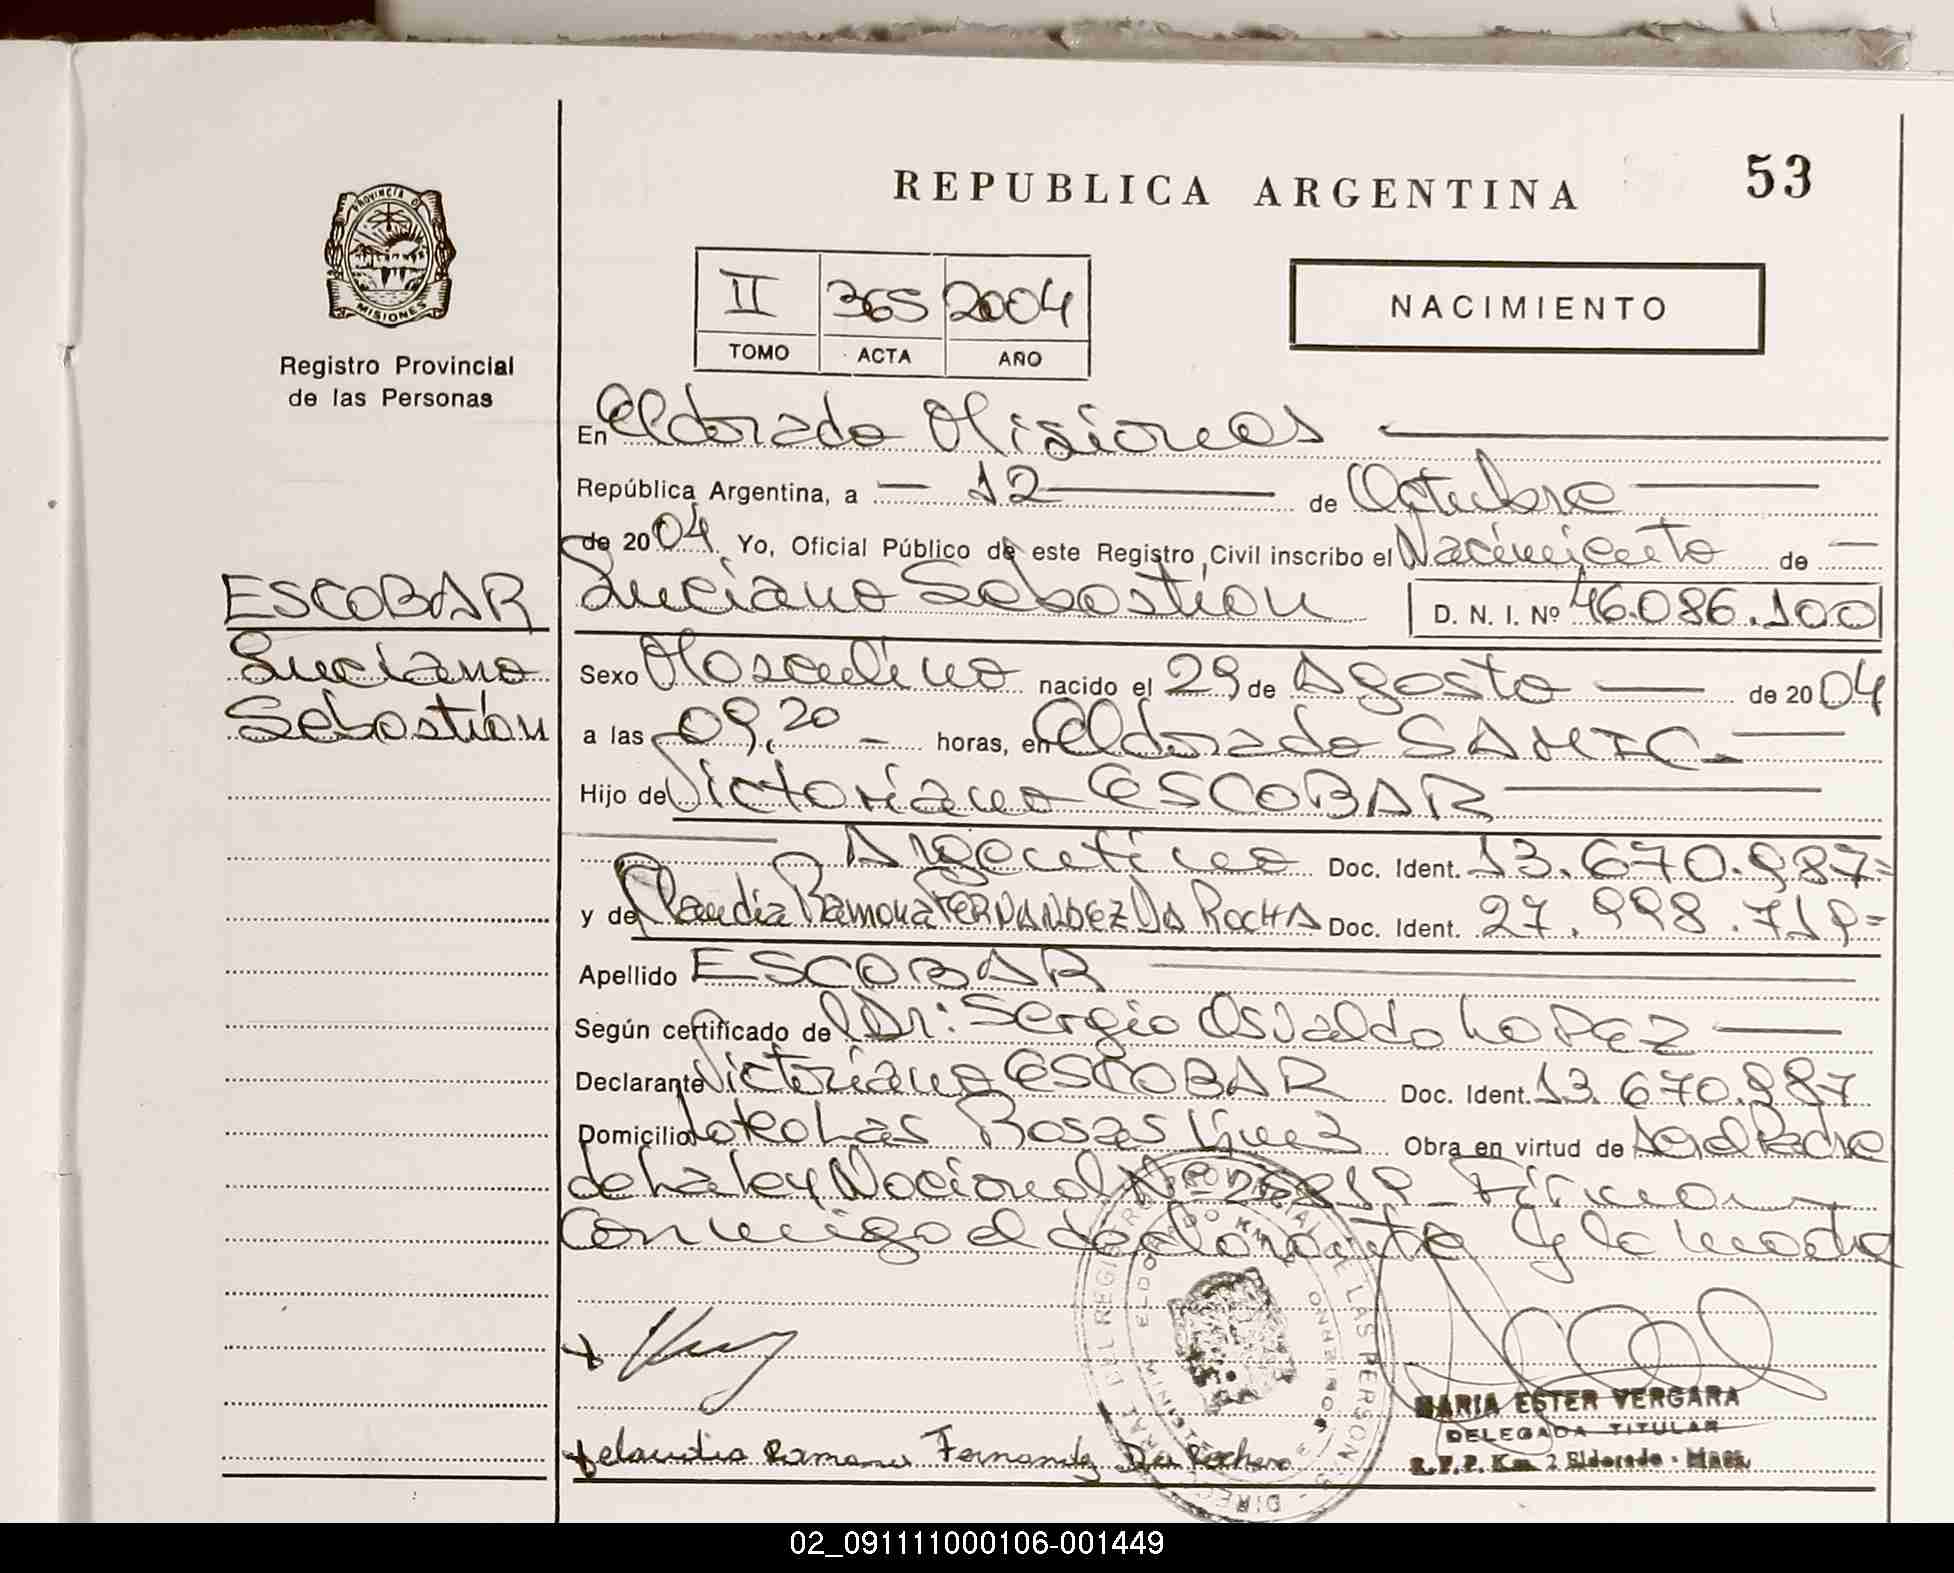 REPUBLICA ARGENTINA
53
PROVINCIA D
MISIONES
Registro Provincial
de las Personas
II 365 2004
TOMO ACTA AÑO
NACIMIENTO
En Eldorado Misiones
República Argentina, a 12 de Octubre
de 2004 Yo, Oficial Público de este Registro Civil inscribo el Nacimiento de
ESCOBAR
Luciano
Sebastián
Luciano Sebastián D. N. I. Nº 46.086.100
Sexo Masculino nacido el 29 de Agosto de 2004
a las 09,20 horas, en Eldorado SAMIC
Hijo de Victoriano ESCOBAR
Argentino Doc. Ident. 13.670.987=
y de Claudia Ramona FERNANDEZ DA ROCHA Doc. Ident. 27.998.719=
Apellido ESCOBAR
Según certificado de Dr: Sergio Osvaldo LOPEZ
Declarante Victoriano ESCOBAR Doc. Ident. 13.670.987
Domicilio Lote Las Rosas Obra en virtud de ser el Padre
de La ley Nacional Nº Firman
conmigo el declarante y la madre
Claudia Ramona Fernandez Da Rocha
MARIA ESTER VERGARA
DELEGADA TITULAR
R.P.P. Km. 2 Eldorado - Mnes.
02_091111000106-001449